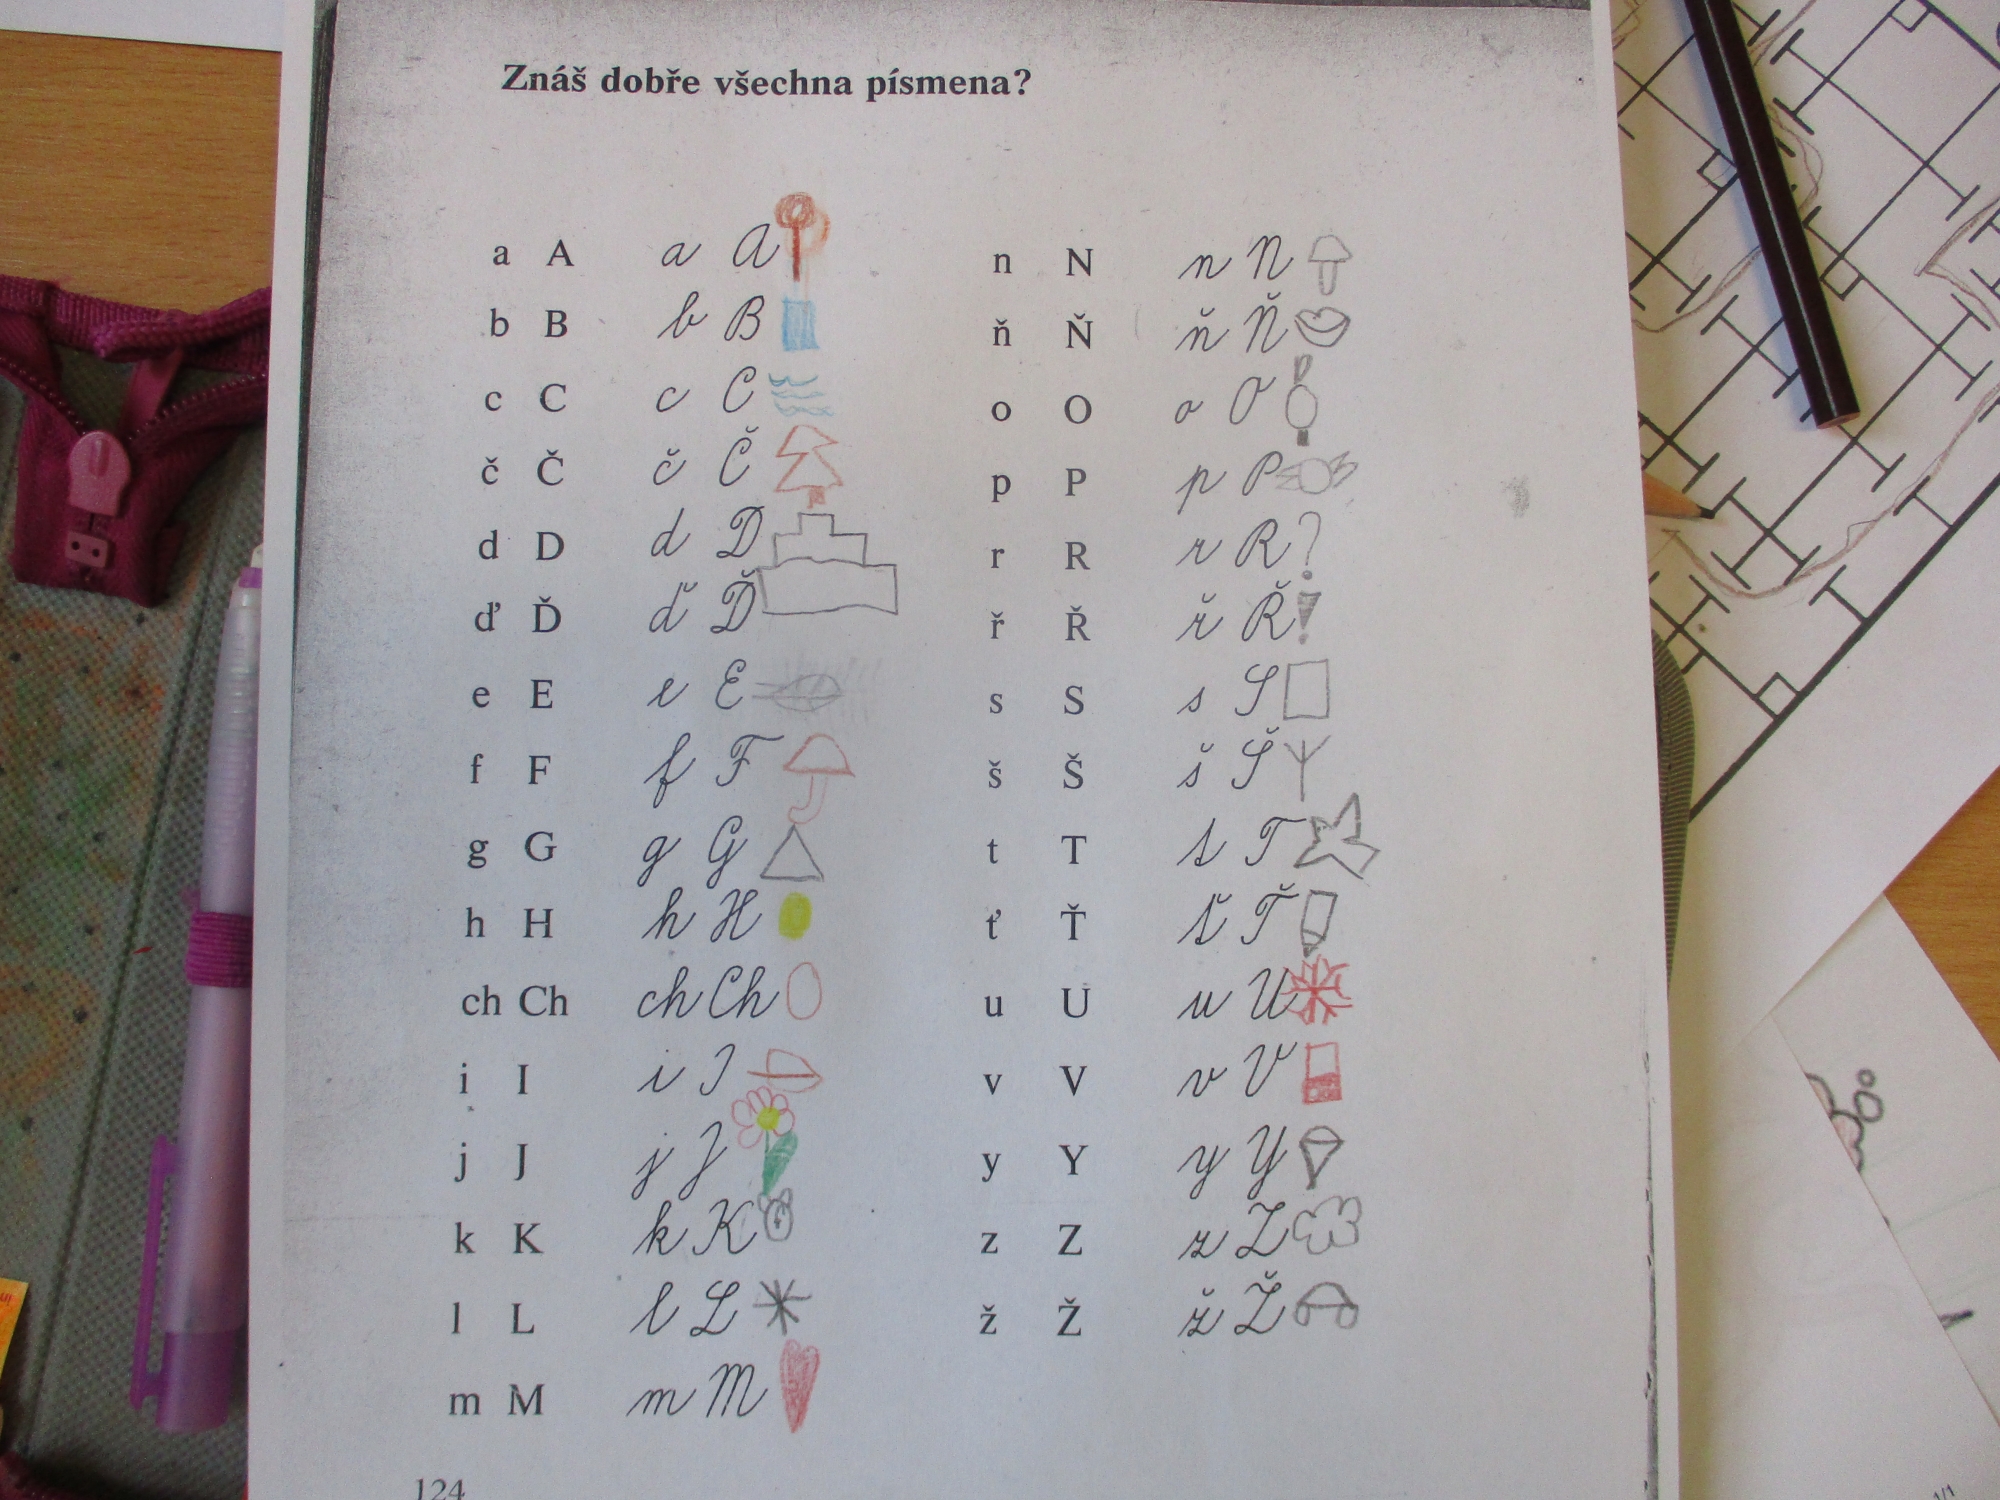 Znáš dobře všechna písmena?
a A a A
b B b B
c C c C
č Č č Č
d D d D
ď Ď ď Ď
e E e E
f F f F
g G g G
h H h H
ch Ch ch Ch
i I i I
j J j J
k K k K
l L l L
m M m M
n N n N
ň Ň ň Ň
o O o O
p P p P
r R r R ?
ř Ř ř Ř !
s S s S
š Š š Š
t T t T
ť Ť ť Ť
u U u U
v V v V
y Y y Y
z Z z Z
ž Ž ž Ž
124
1/1